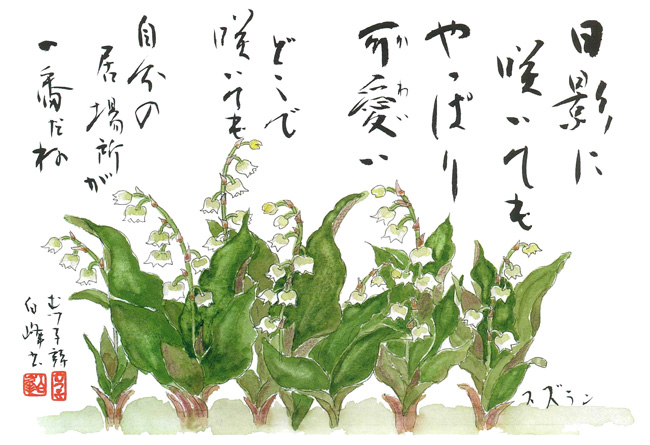 日影に
咲いても
やっぱり
可愛い
かわ
どこで
咲いても
自分の
居場所が
一番だね
白峰
スズラン